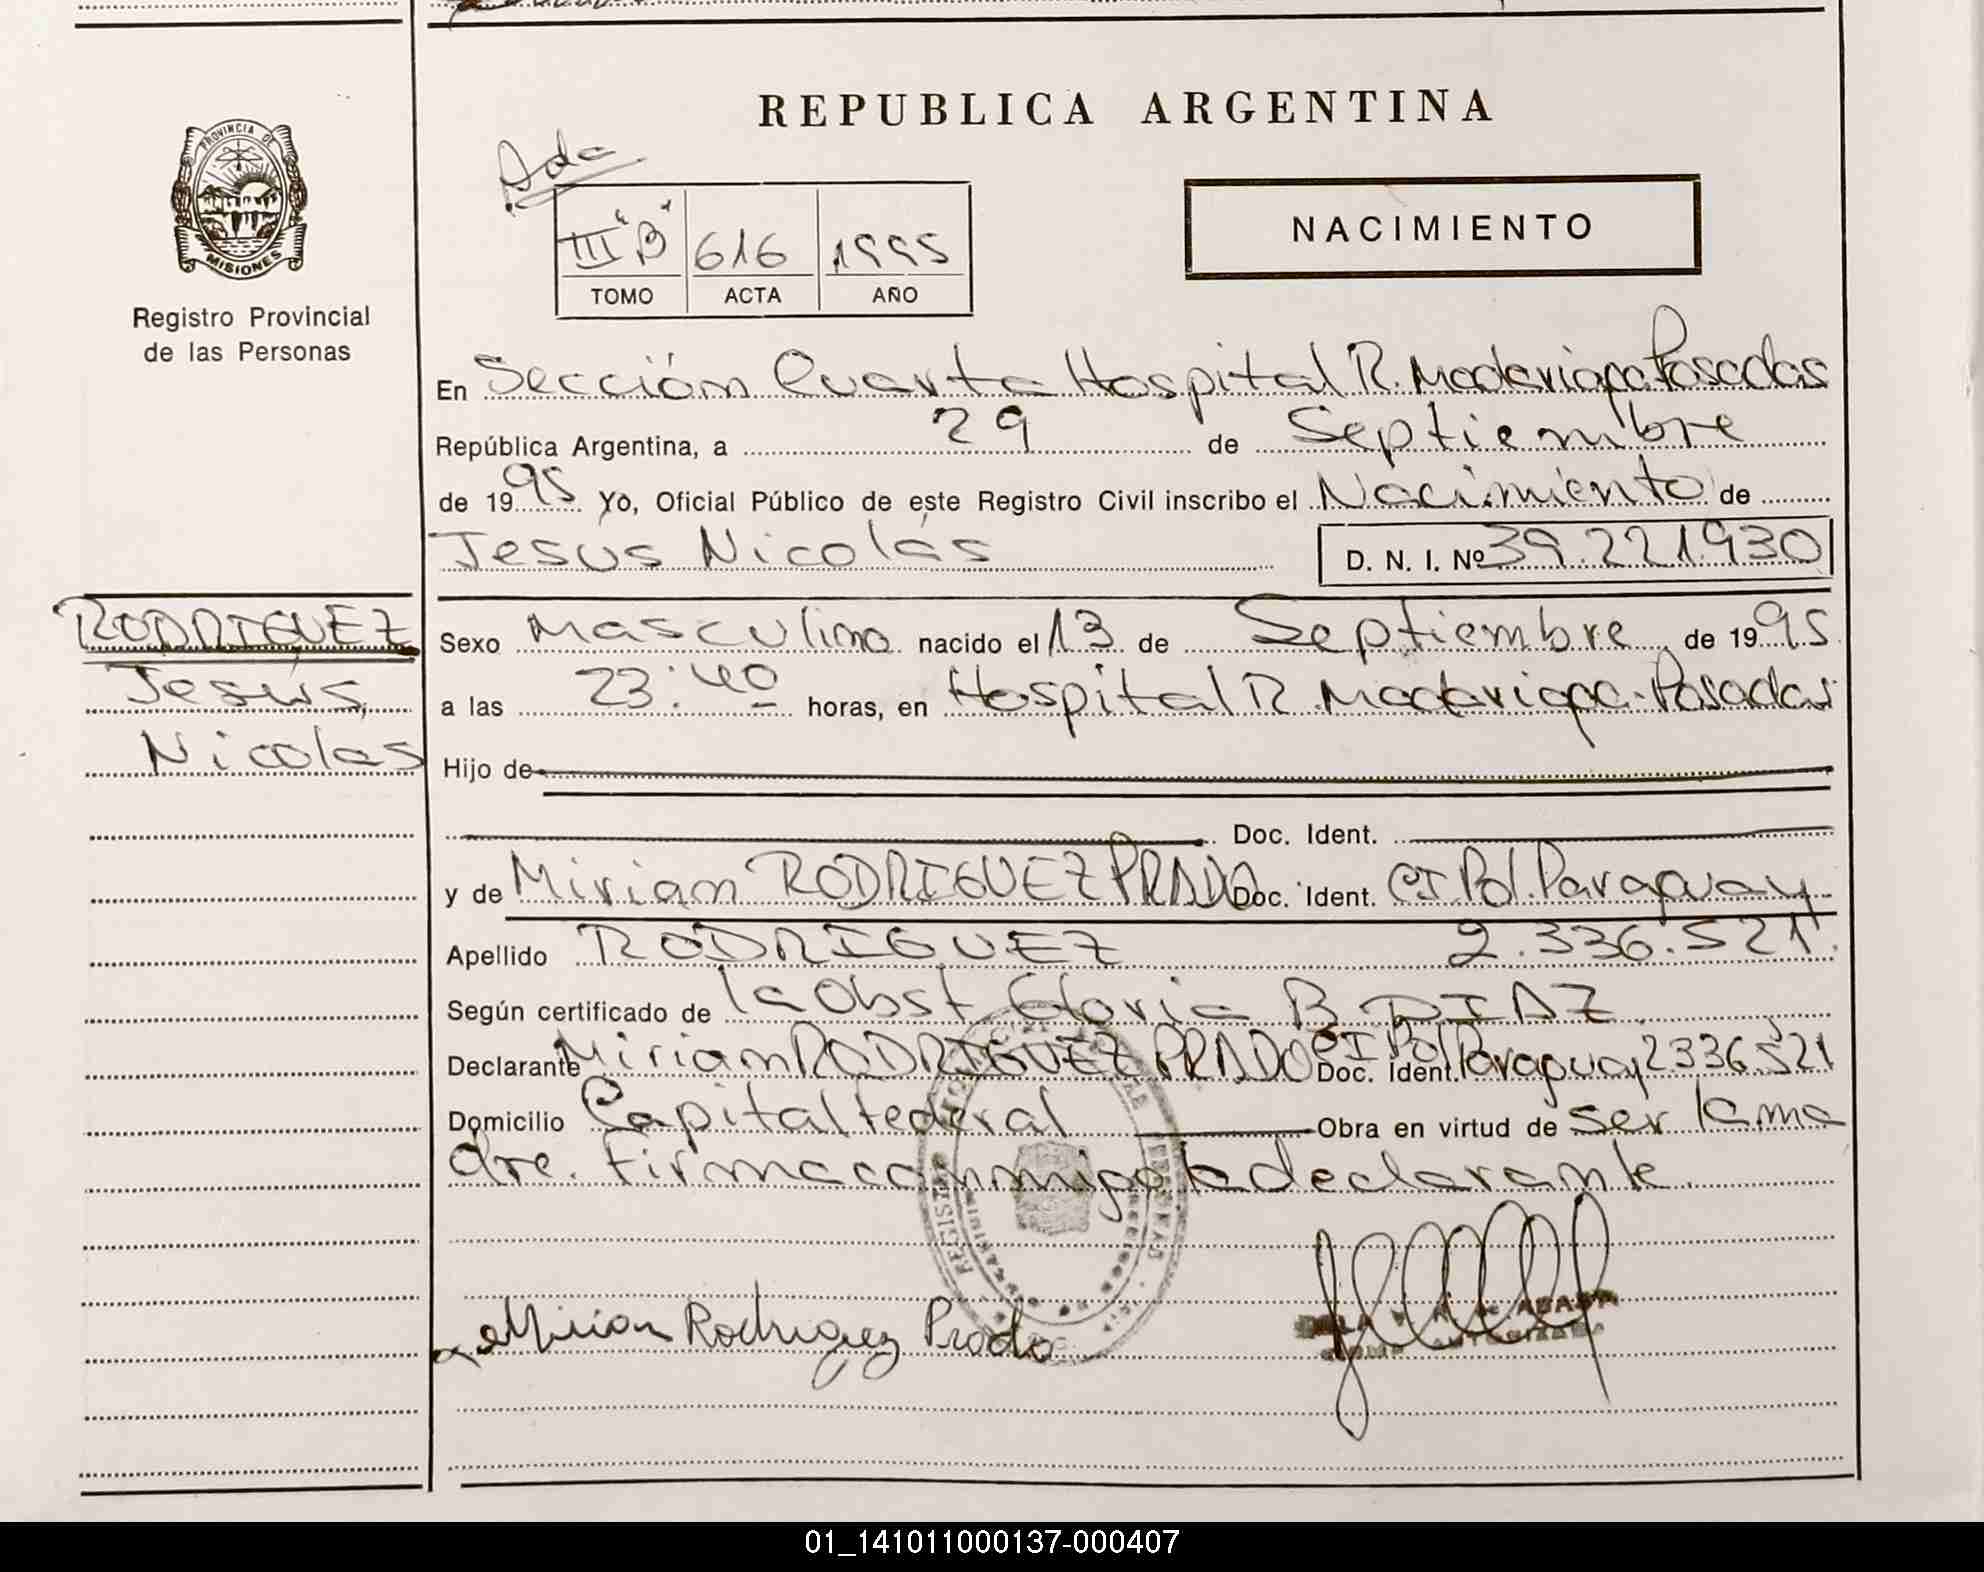 REPUBLICA ARGENTINA
PROVINCIA DE
MISIONES
Registro Provincial
de las Personas
III "B" 616 1995
TOMO ACTA AÑO
NACIMIENTO
En Sección Cuarta Hospital R. Madariaga Posadas
República Argentina, a 29 de Septiembre
de 1995 Yo, Oficial Público de este Registro Civil inscribo el Nacimiento de
Jesus Nicolás D. N. I. Nº 39.221.930
RODRIGUEZ
Jesús,
Nicolas
Sexo Masculino nacido el 13 de Septiembre de 1995
a las 23:40 horas, en Hospital R. Madariaga-Posadas
Hijo de
Doc. Ident.
y de Miriam RODRIGUEZ PRADO Doc. Ident. CI Pol. Paraguay
Apellido RODRIGUEZ 2.336.521
Según certificado de la Obst Gloria B DIAZ
Declarante Miriam RODRIGUEZ PRADO Doc. Ident. CI Pol Paraguay 2336521
Domicilio Capital Federal Obra en virtud de ser la ma
dre. Firma conmigo la declarante.
Mirian Rodriguez Prado
01_141011000137-000407